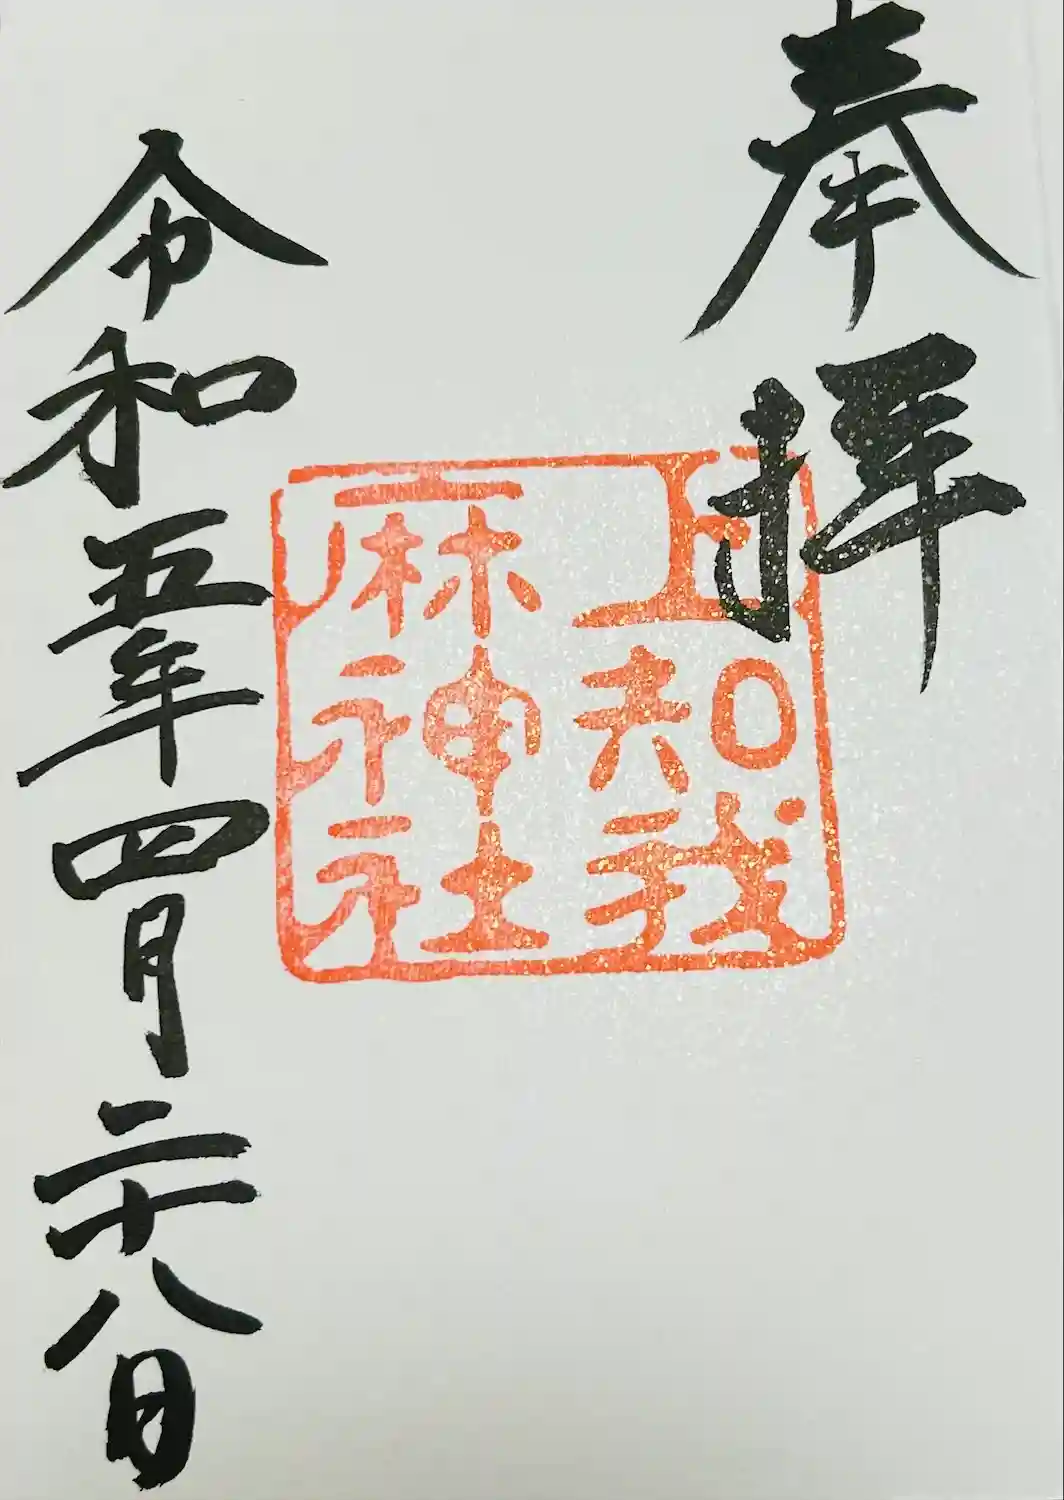 奉拝
上知我
麻神社
令和五年四月二十八日